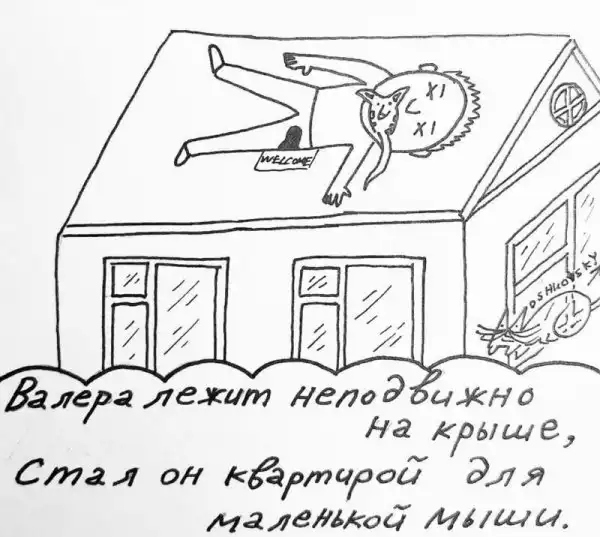 XI
XI
WELCOME
OSHUOVSKY
Валера лежит неподвижно
на крыше,
Стал он квартирой для
маленькой мыши.